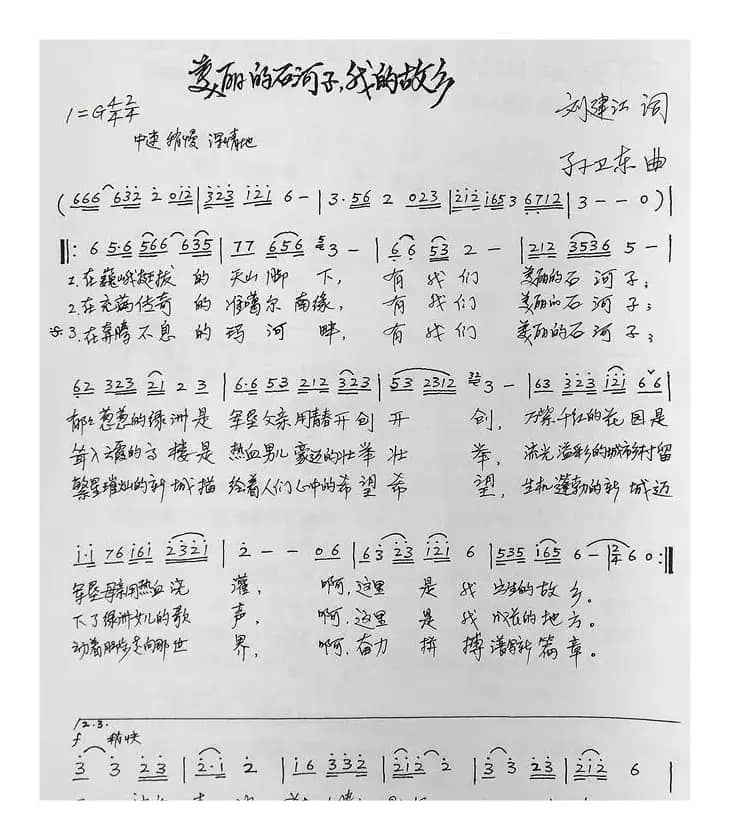 美丽的石河子,我的故乡
1=G 4/4 2/4
刘建江 词
中速 稍慢 深情地
孙卫东 曲
(666 632 2 012|323 121 6-|3·56 2 023|212 1653 6712|3--0)|
‖: 6 5·6 566 635|77 656 3-|66 53 2-|212 3536 5-|
1.在巍峨挺拔的天山脚下,有我们美丽的石河子;
2.在充满传奇的准噶尔南缘,有我们美丽的石河子;
3.在奔腾不息的玛河畔,有我们美丽的石河子;
62 323 21 2 3|6·6 53 212 323|53 2312 3-|63 323 121 66|
郁郁葱葱的绿洲是军垦父亲用青春开创开创,万紫千红的花园是
耸入云霞的高楼是热血男儿豪迈的壮举壮举,流光溢彩的城市乡村留
繁星璀灿的新城描绘着人们心中的希望希望,生机蓬勃的新城迈
1·1 76 161 2321|2--06|63 23 121 6|535 165 6-|2/4 6 0:‖
军垦母亲用热血浇灌,啊,这里是我的故乡。
下了绿洲儿的歌声,啊,这里是我成长的地方。
动着脚步走向那世界,啊,奋力拼搏谱写新篇章。
12.3.
f 稍快
3 3 23|2·1 2|16 332|212 2|3 3 23|212 6|